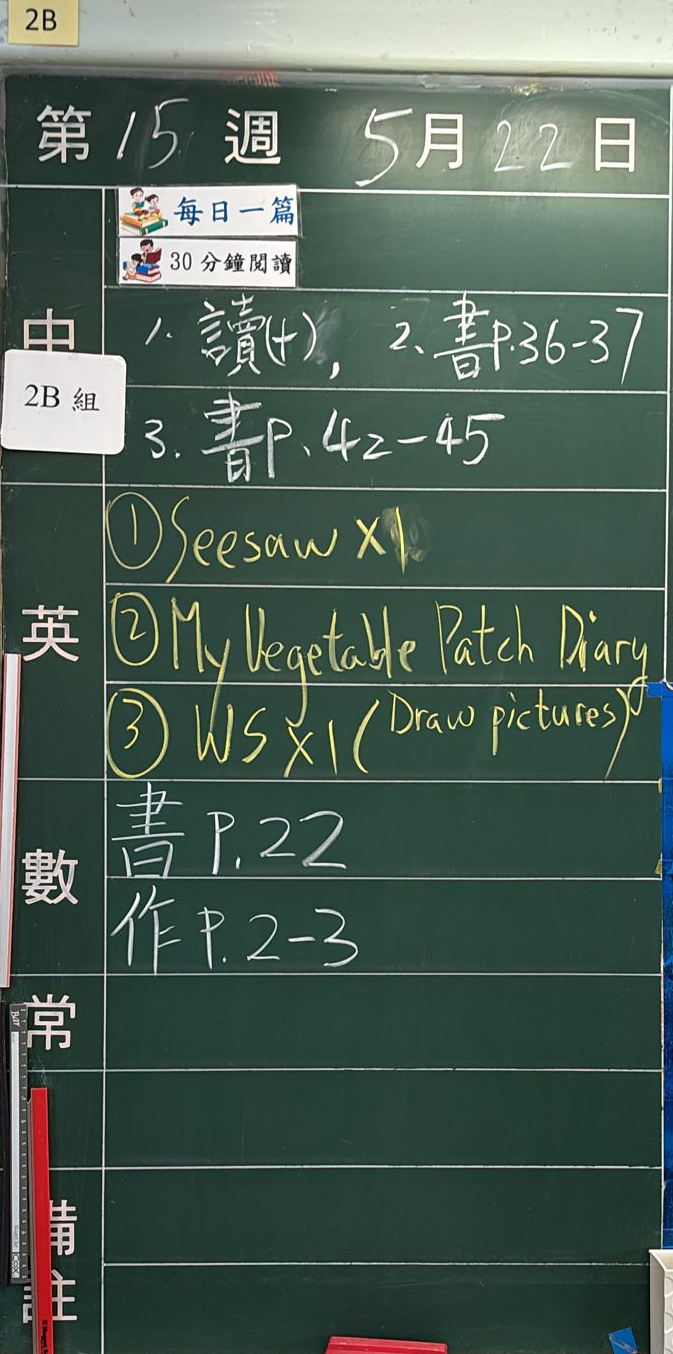 2B
第15週 5月22日
每日一篇
30分鐘閱讀
中
1. 讀(十), 2、書P.36-37
2B 組
3. 書P、42-45
英
①Seesaw X1
②My Vegetable Patch Diary
③ WS X1 (Draw pictures)
數
書 P.22
作 P.2-3
常
備註